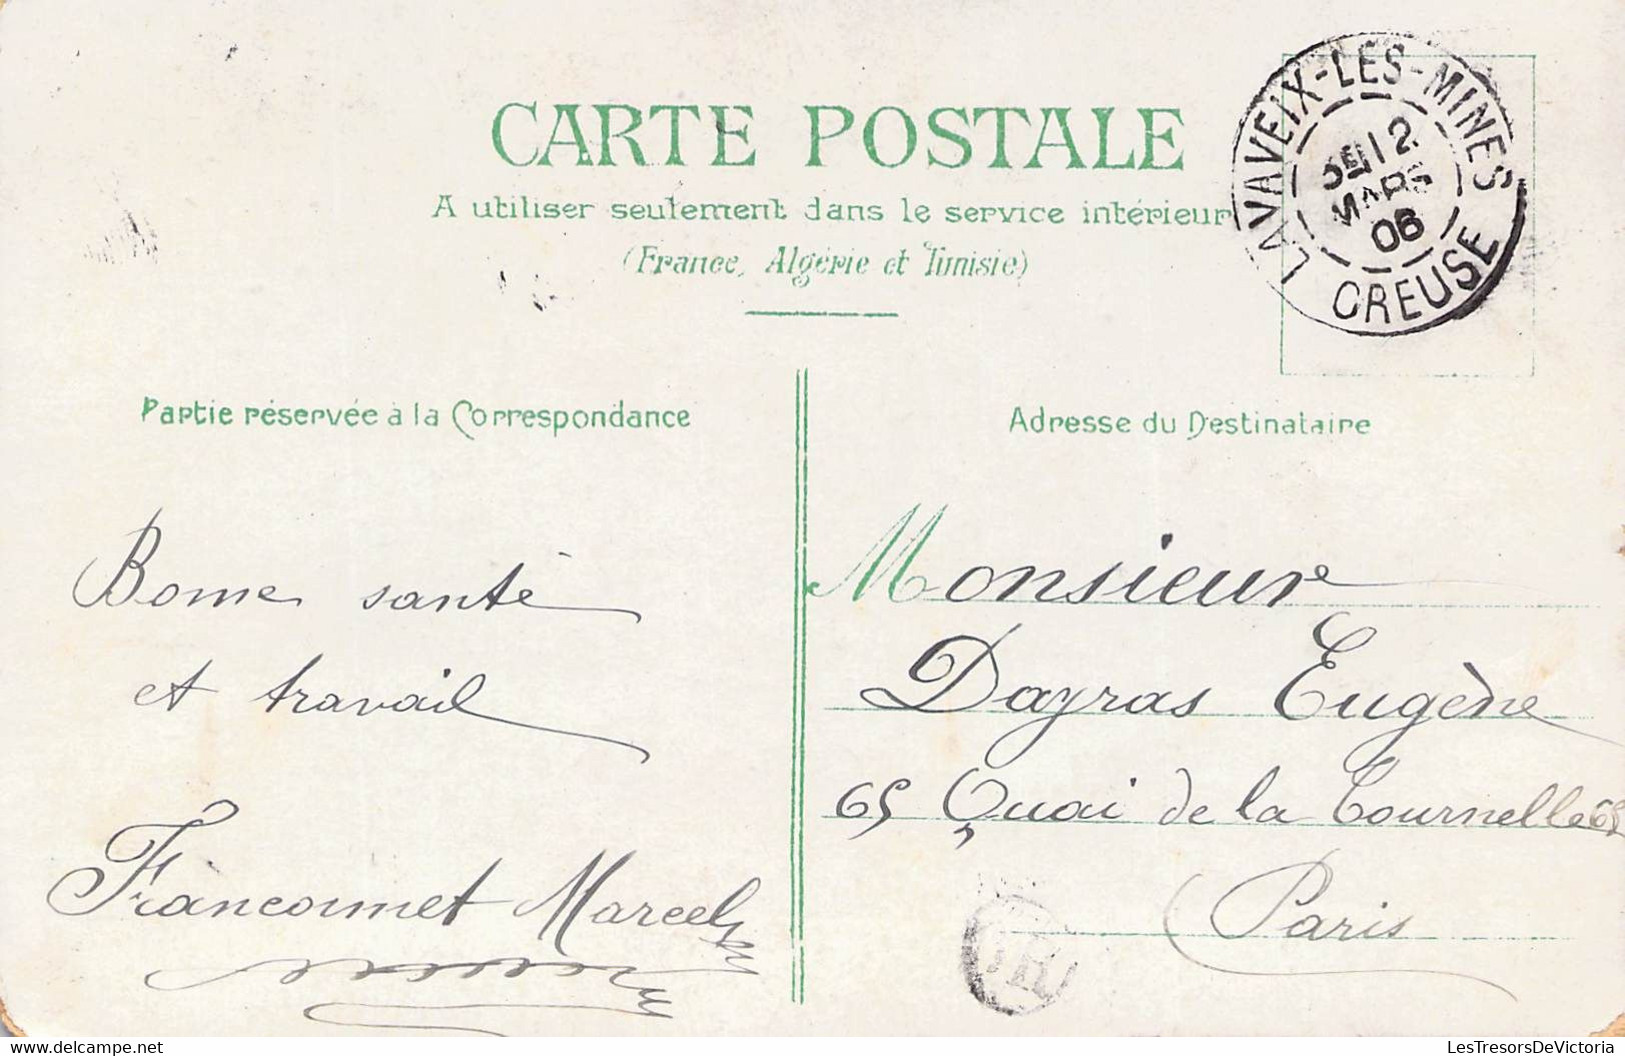 CARTE POSTALE
A utiliser seulement dans le service intérieur
(France, Algérie et Tunisie)
LAVAVEIX-LES-MINES
12
MARS
06
CREUSE
Partie réservée à la Correspondance
Adresse du Destinataire
Bonne santé
et travail
Franconnet Marcel
Monsieur
Dayras Eugène
65 Quai de la Tournelle 65
Paris
www.delcampe.net
LesTresorsDeVictoria